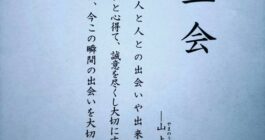 会
人と人との出会いや出来
と心得て、誠意を尽くし大切に
、今この瞬間の出会いを大切
──山上
やまのう